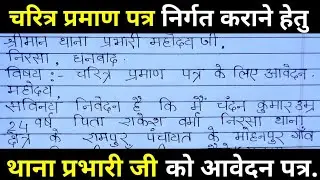 चरित्र प्रमाण पत्र निर्गत कराने हेतु
श्रीमान थाना प्रभारी महोदय जी,
निरसा, धनबाद।
विषय :- चरित्र प्रमाण पत्र के लिए आवेदन
महोदय,
सविनय निवेदन है कि मैं चंदन कुमार उम्र
24 वर्ष पिता राकेश वर्मा निरसा थाना
क्षेत्र के रामपुर पंचायत के मोहनपुर गाँव
थाना प्रभारी जी को आवेदन पत्र.